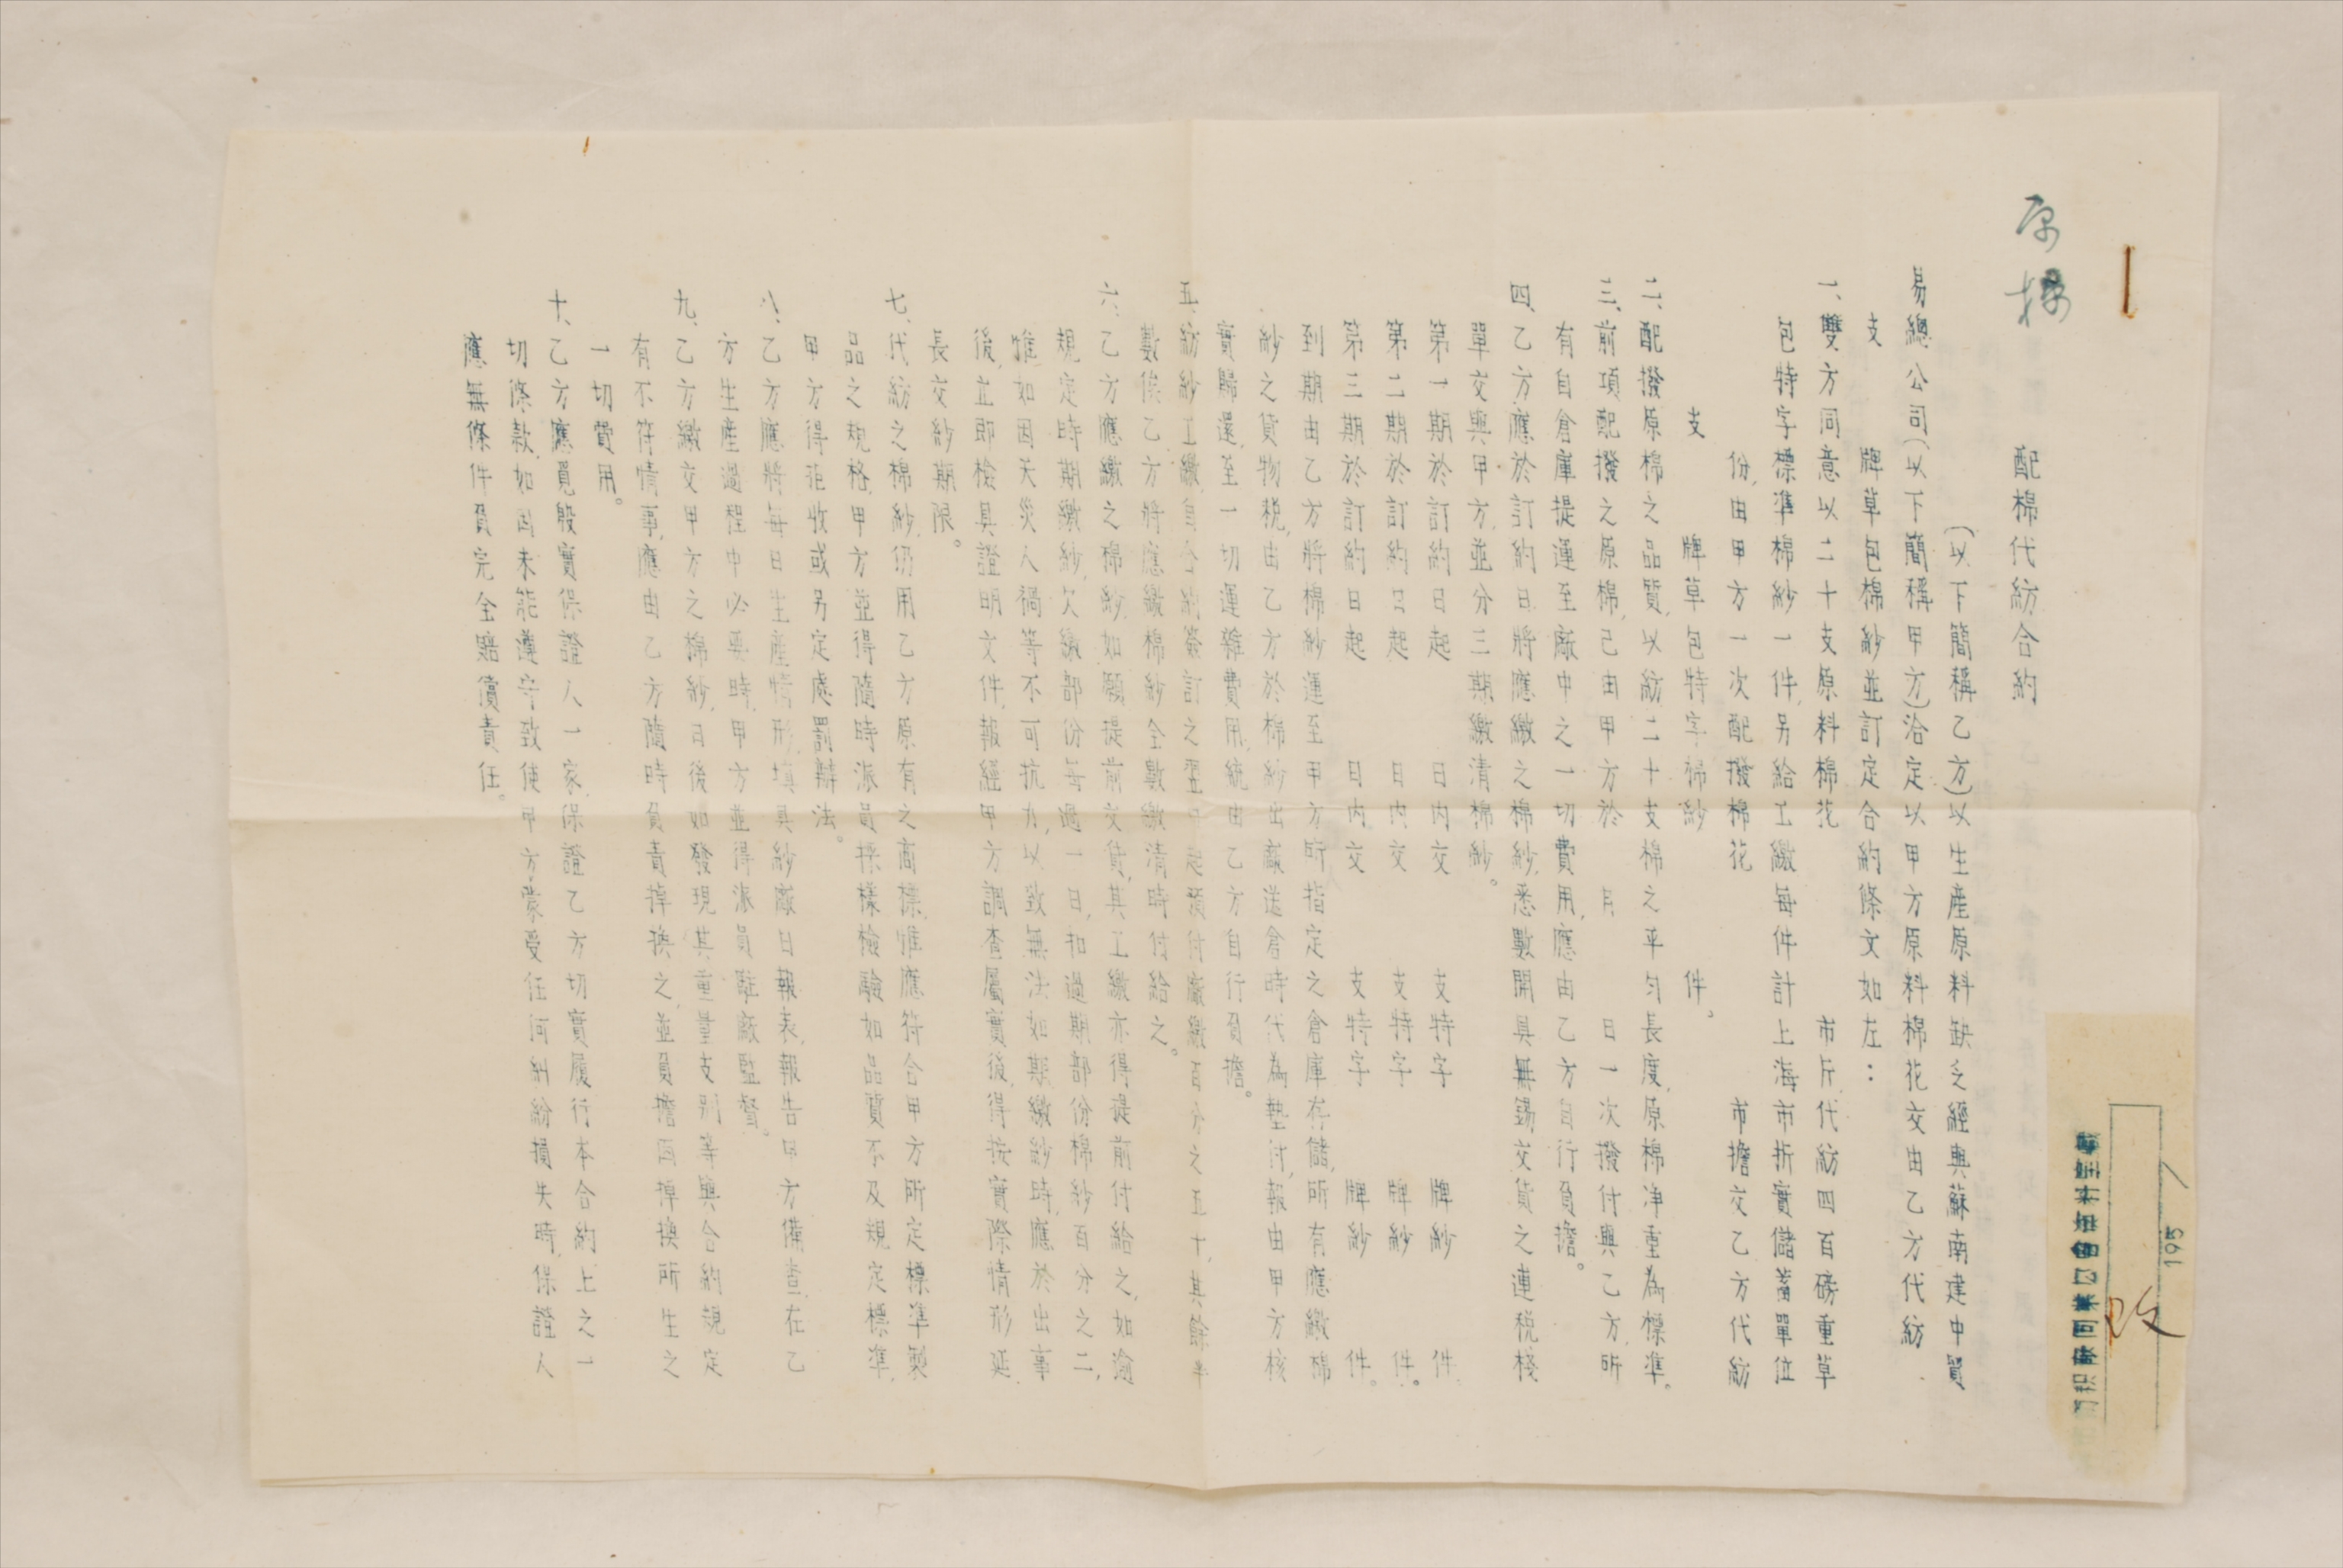 配棉代紡合約
(以下簡稱乙方)以生產原料缺乏經與蘇南建中貿
易總公司(以下簡稱甲方)洽定以甲方原料棉花交由乙方代紡
支 牌草包棉紗並訂定合約條文如左：
一、雙方同意以二十支原料棉花 市斤代紡四百磅重草
包特字標準棉紗一件，另給工繳每件計上海市折實儲蓄單位
份，由甲方一次配撥棉花 市擔交乙方代紡
支 牌草包特字棉紗 件。
二、配撥原棉之品質，以紡二十支棉之平勻長度，原棉净重為標準。
三、前項配撥之原棉，已由甲方於 月 日一次撥付與乙方，所
有自倉庫提運至廠中之一切費用，應由乙方自行負擔。
四、乙方應於訂約日將應繳之棉紗，悉數開具無錫交貨之連税棧
單交與甲方，並分三期繳清棉紗。
第一期於訂約日起 日内交 支特字 牌紗 件
第二期於訂約日起 日内交 支特字 牌紗 件。
第三期於訂約日起 日内交 支特字 牌紗 件。
到期由乙方將棉紗運至甲方所指定之倉庫存儲，所有應繳棉
紗之貨物税，由乙方於棉紗出廠送倉時代為墊付，報由甲方核
實歸還，至一切運雜費用，統由乙方自行負擔。
五、紡紗工繳，自合約簽訂之翌日起預付廠繳百分之五十，其餘半
數俟乙方將應繳棉紗全數繳清時付給之。
六、乙方應繳之棉紗，如願提前交貨，其工繳亦得提前付給之，如逾
規定時期繳紗，欠繳部份每過一日，扣過期部份棉紗百分之二，
惟如因天災人禍等不可抗力，以致無法如期繳紗時，應於出事
後，立即檢具證明文件，報經甲方調查屬實後，得按實際情形延
長交紗期限。
七、代紡之棉紗，仍用乙方原有之商標，惟應符合甲方所定標準製
品之規格，甲方並得隨時派員採樣檢驗如品質不及規定標準，
甲方得拒收或另定處罰辦法。
八、乙方應將每日生產情形，填具紗廠日報表，報告甲方備查，在乙
方生產過程中必要時，甲方並得派員駐廠監督。
九、乙方繳交甲方之棉紗，日後如發現其重量支别等與合約規定
有不符情事，應由乙方隨時負責掉换之，並負擔因掉换所生之
一切費用。
十、乙方應覓殷實保證人一家，保證乙方切實履行本合約上之一
切條款，如因未能遵守致使甲方蒙受任何糾紛損失時，保證人
應無條件負完全賠償責任。
195
改